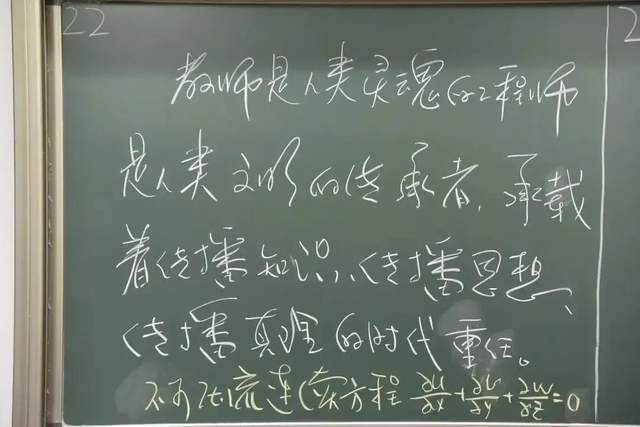 22
教师是人类灵魂的工程师
是人类文明的传承者，承载
着传播知识、传播思想、
传播真理的时代重任。
不可压流连续方程 ∂u/∂x+∂v/∂y+∂w/∂z=0